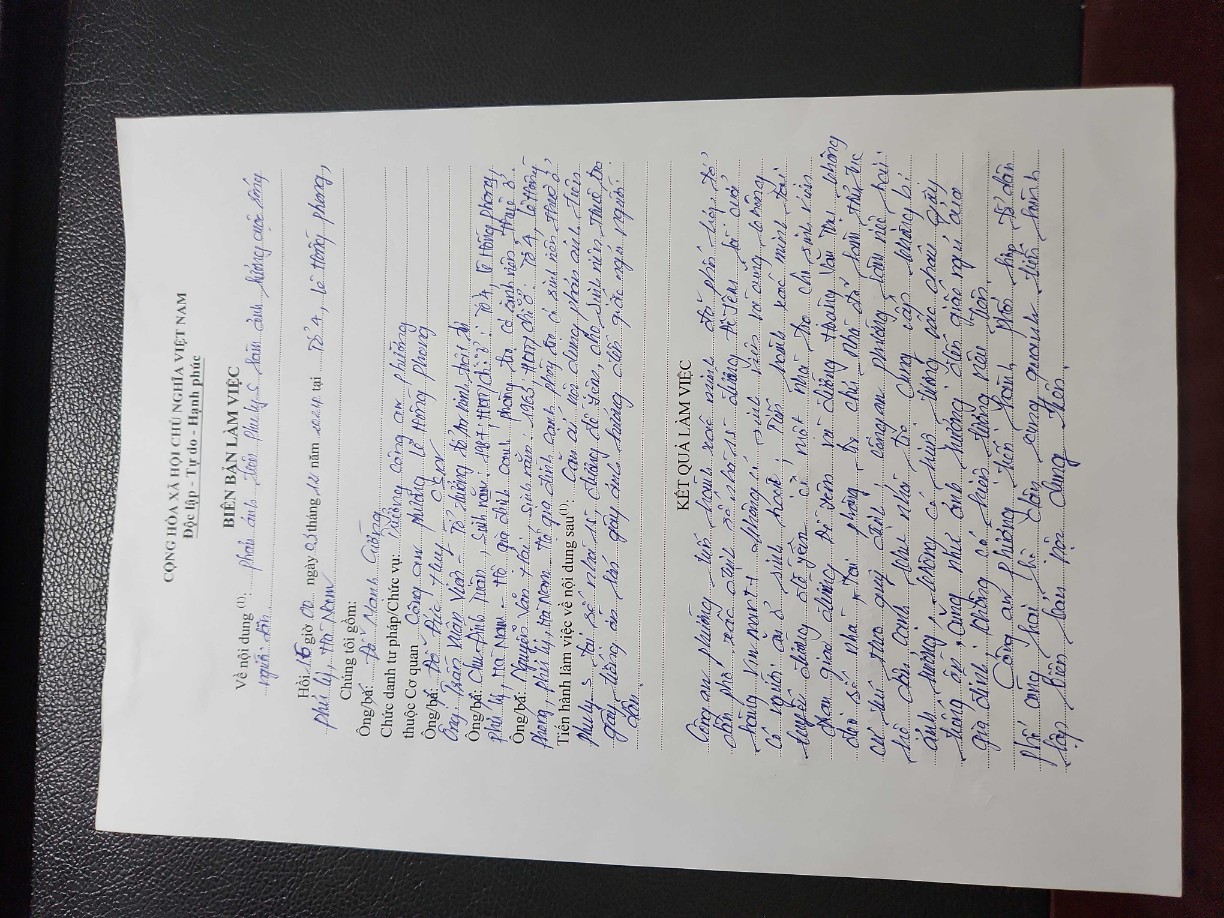 CỘNG HÒA XÃ HỘI CHỦ NGHĨA VIỆT NAM
Độc lập - Tự do - Hạnh phúc
BIÊN BẢN LÀM VIỆC
Về nội dung (1): phản ánh trên phuly S làm ảnh hưởng cuộc sống
người dân.
Hồi 16 giờ 00 ngày 03 tháng 12 năm 2024 tại Tổ 4, Lê Hồng Phong,
phủ lý, Hà Nam
Chúng tôi gồm:
Ông/bà: Đỗ Mạnh Cường
Chức danh tư pháp/Chức vụ: Trưởng công an phường
thuộc Cơ quan Công an phường Lê Hồng Phong
Ông/bà: Đỗ Đức Huy - CSKV
Ông: Trần Xuân Viên - Tổ trưởng tổ An ninh trật tự
Ông/bà: Chu Đình Tuấn, Sinh năm: 1987; HKTT/chỗ ở: Tổ 4, lê Hồng Phong,
phủ lý, Hà Nam - Hộ gia đình cạnh phòng trọ có sinh viên thuê ở.
Ông/bà: Nguyễn Văn Hải, sinh năm: 1963; HKTT/chỗ ở: Tổ 4, lê Hồng
Phong, phủ lý, Hà Nam - Hộ gia đình cạnh phòng trọ có sinh viên thuê ở
Tiến hành làm việc về nội dung sau(1): Căn cứ nội dung phản ánh trên
phuly S tại số nhà 15, đường đê Yêm, cho sinh viên thuê trọ
gây tiếng ồn lớn gây ảnh hưởng đến giấc ngủ người
dân.
KẾT QUẢ LÀM VIỆC
Công an phường tiến hành xác minh đã phối hợp tổ
dân phố xác định số nhà 15 đường Đê Yêm là cửa
hàng vinmart+ không có sinh viên và cũng không
có người ăn ở sinh hoạt; Tiến hành xác minh tại
tuyến đường đê Yêm có một nhà trọ cho sinh viên
đoạn giao đường Đê Yêm và đường Hoàng Văn Thụ không
đeo số nhà, Tại phòng trọ chủ nhà đã làm thủ tục
cư trú theo quy định, công an phường làm việc hai
hộ dân cạnh khu nhà trọ cung cấp không bị
ảnh hưởng, không có hiện tượng các cháu gây
tiếng ồn, cũng như ảnh hưởng đến giấc ngủ của
gia đình; không có hiện tượng nêu trên.
Công an phường tiến hành phối hợp tổ dân
phố cùng hai hộ dân xung quanh tiến hành
lập biên bản nội dung trên.